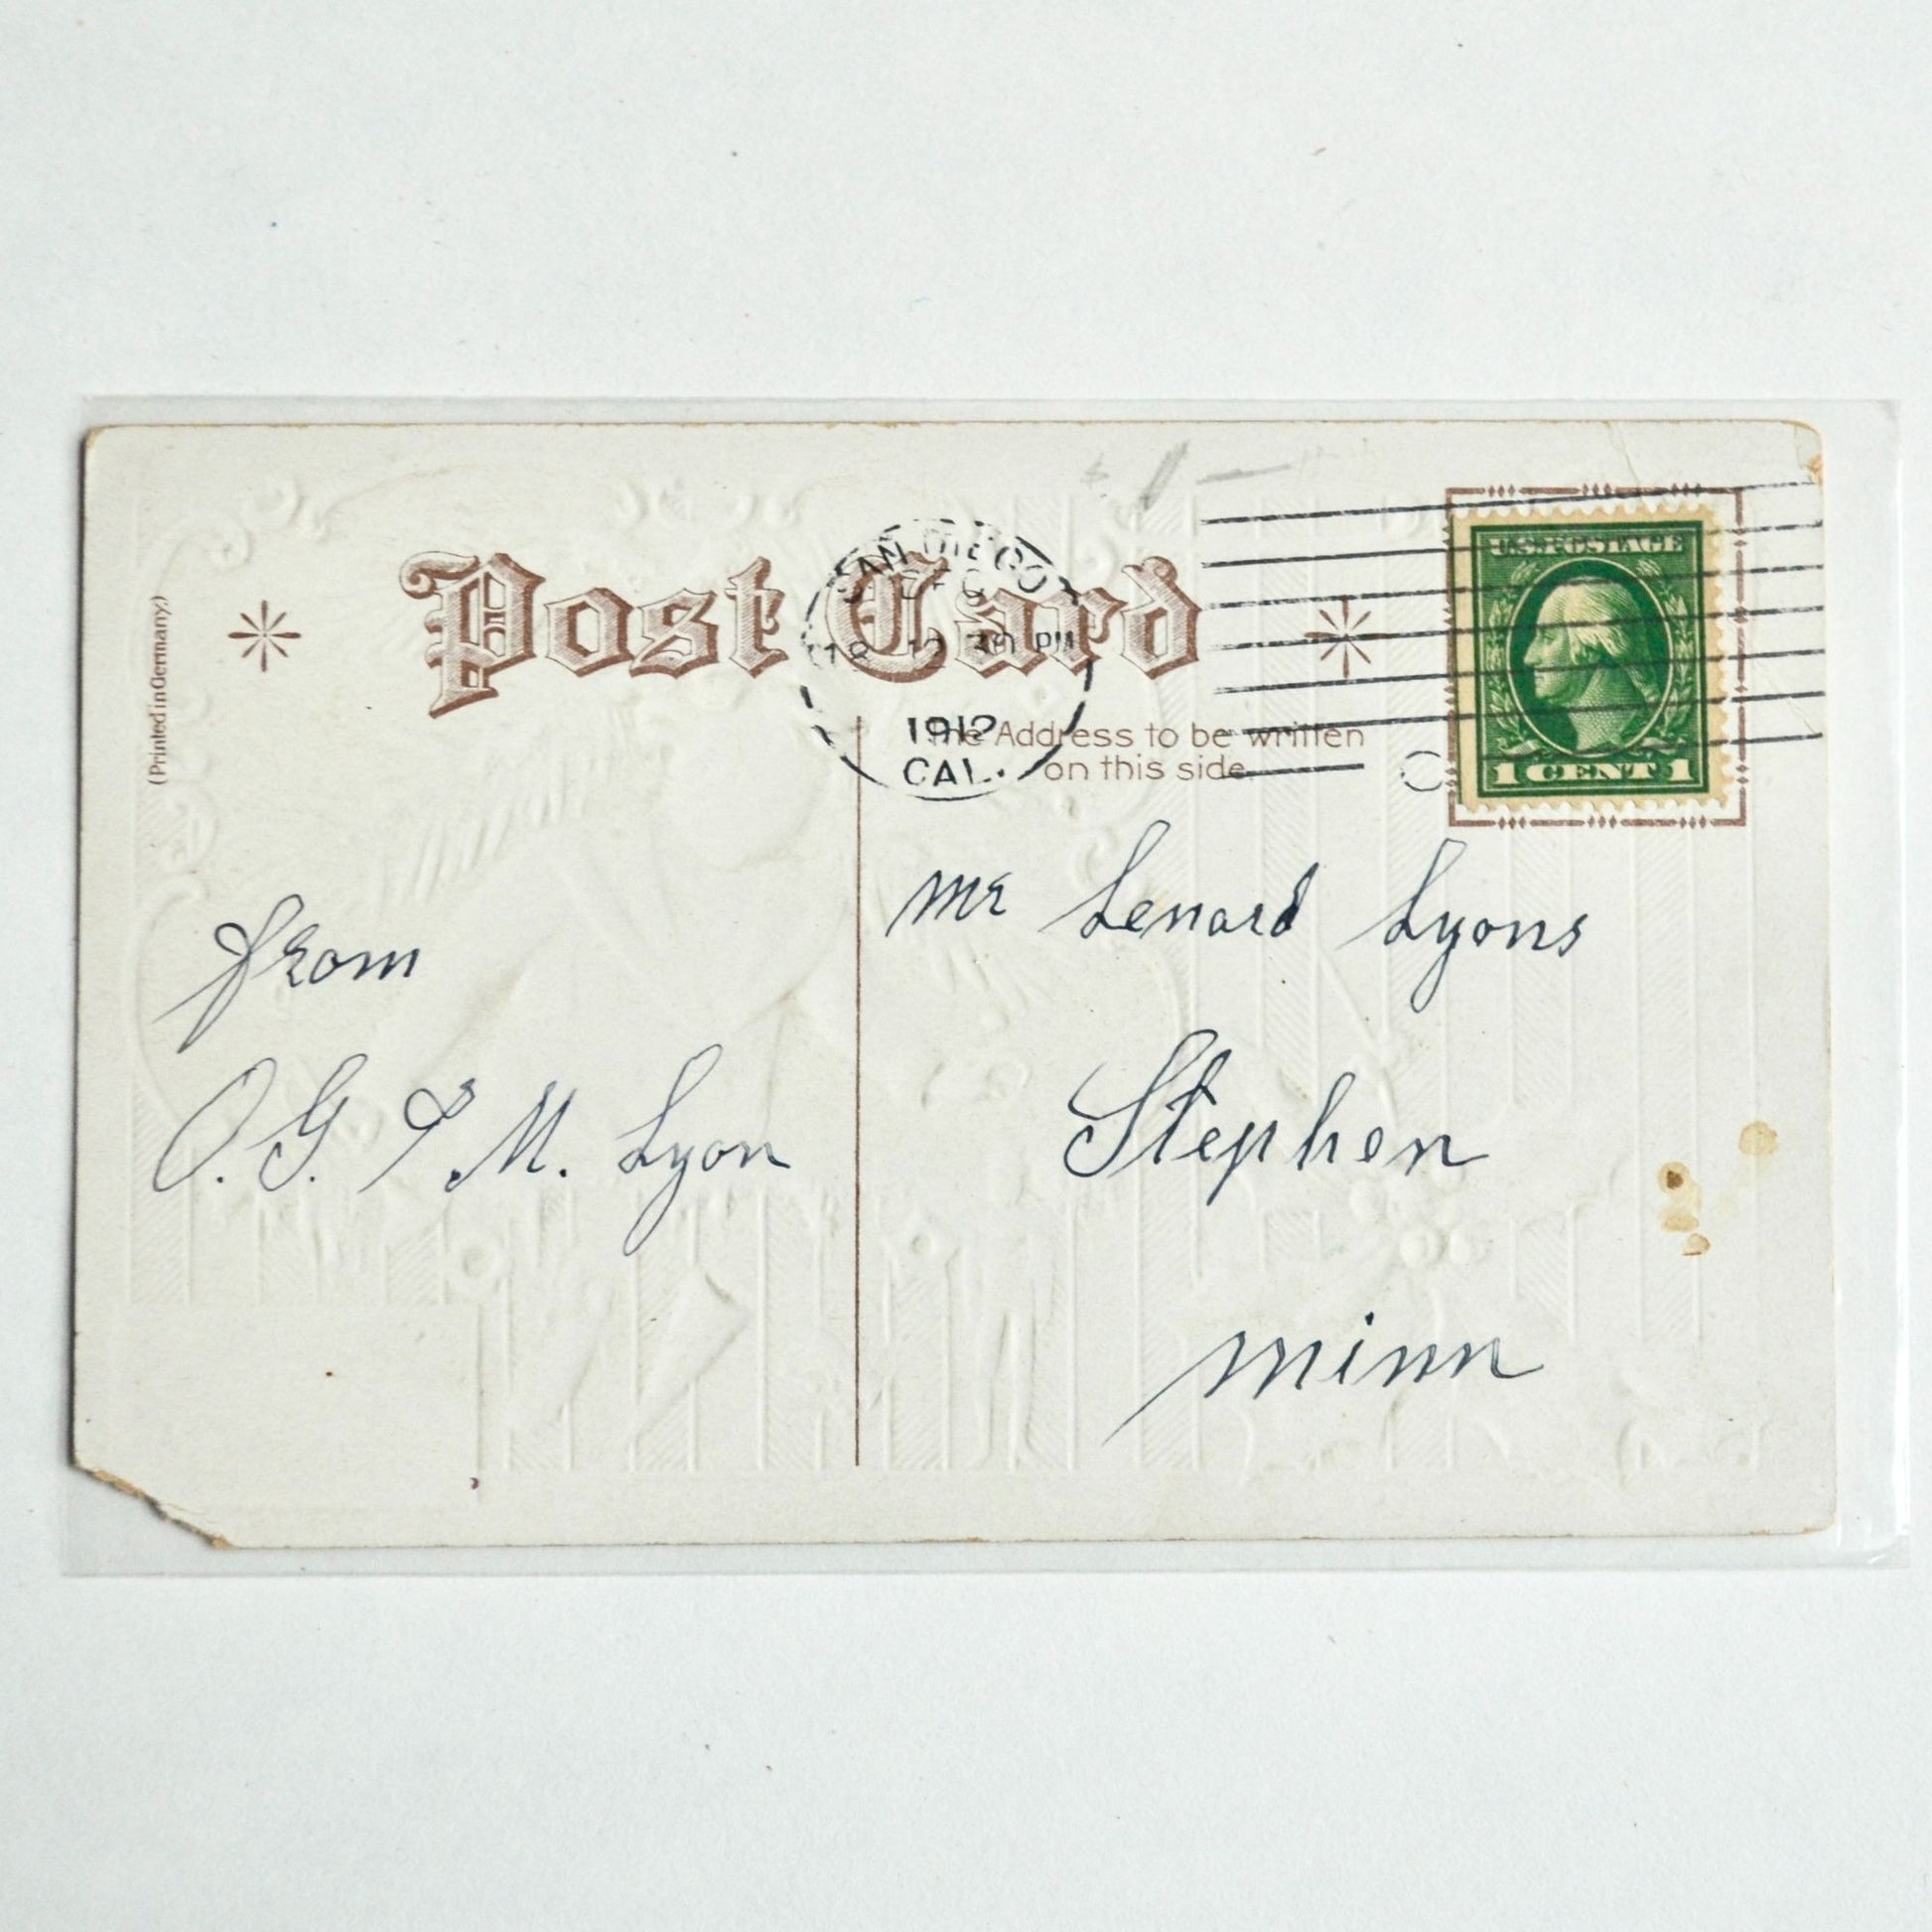 (Printed in Germany.)
Post Card
SAN DIEGO
DEC
18 12 30 PM
1912
CAL.
The Address to be written
on this side
U.S. POSTAGE
1 CENT 1
from
O. G. & M. Lyon
Mr Lenard Lyons
Stephen
Minn